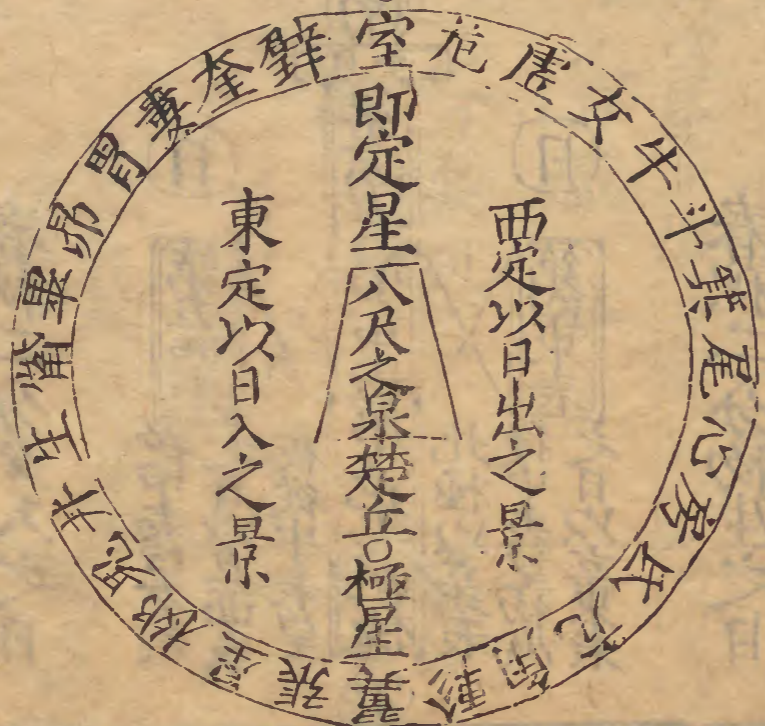 室危虛女牛斗箕尾心房氐亢角軫翼張星柳鬼井觜畢昴胃婁奎壁
西定以日出之景
即定星八尺之臬楚丘○極星
東定以日入之景